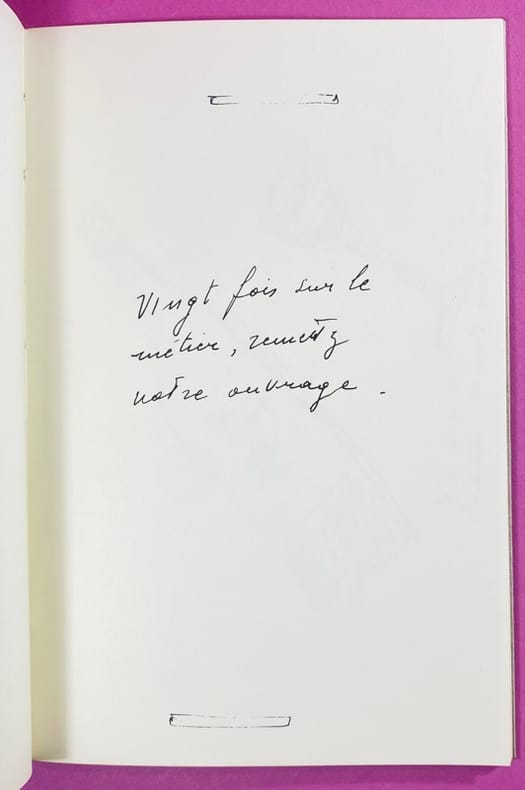 Vingt fois sur le
métier, remettez
votre ouvrage.